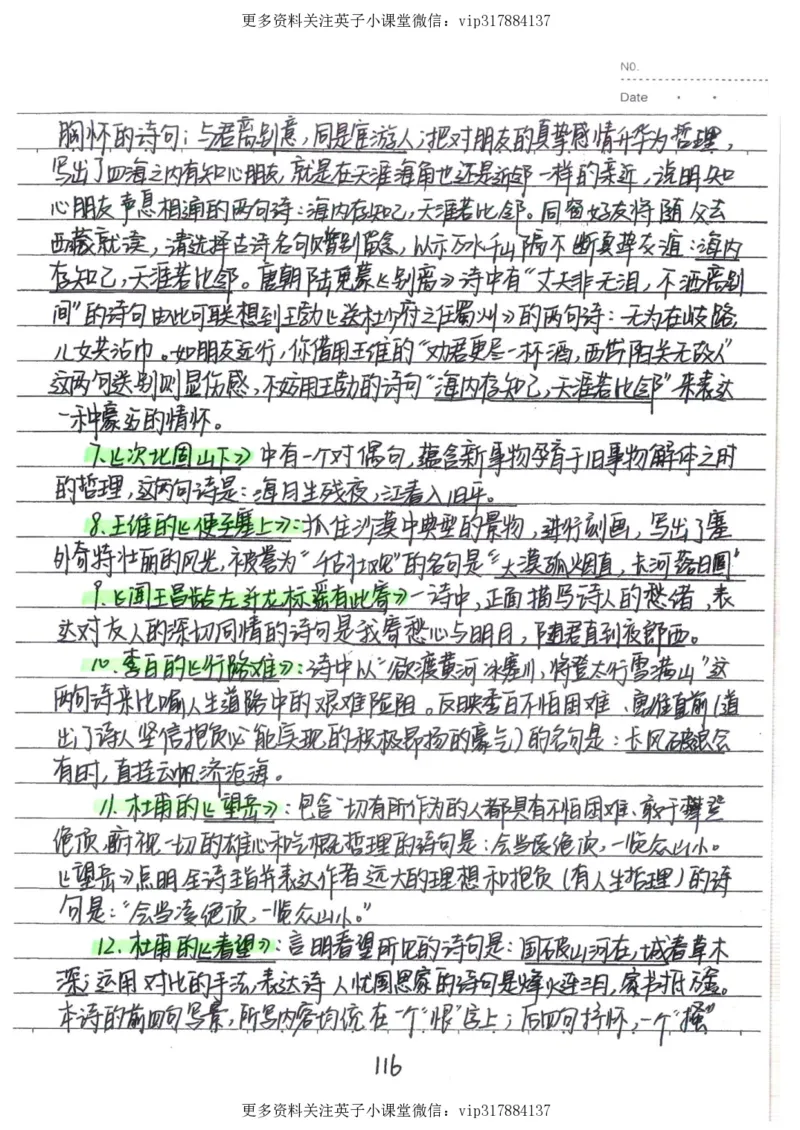 更多资料关注英子小课堂微信：vip317884137
NO.
Date
胸怀的诗句；与君离别意，同是宦游人；把对朋友的真挚感情升华为哲理，
写出了四海之内有知心朋友，就是在天涯海角也还是近邻一样的亲近，说明知
心朋友声息相通的两句诗：海内存知己，天涯若比邻。同窗好友将随父去
西藏就读，请选择古诗名句赠别留念，以示万水千山隔不断真挚友谊：海内
存知己，天涯若比邻。唐朝陆龟蒙《别离》诗中有“丈夫非无泪，不洒离别
间”的诗句由此可联想到王勃《送杜少府之任蜀州》的两句诗：无为在岐路，
儿女共沾巾。如朋友远行，你借用王维的“劝君更尽一杯酒，西出阳关无故人”
这两句送别则显伤感，不妨用王勃的诗句“海内存知己，天涯若比邻”来表达
一种豪迈的情怀。
7.《次北固山下》中有一个对偶句，蕴含新事物孕育于旧事物解体之时
的哲理，这两句诗是：海日生残夜，江春入旧年。
8.王维的《使至塞上》：抓住沙漠中典型的景物，进行刻画，写出了塞
外奇特壮丽的风光，被誉为“千古壮观”的名句是“大漠孤烟直，长河落日圆”
9.《闻王昌龄左迁龙标遥有此寄》一诗中，正面描写诗人的愁绪，表
达对友人的深切同情的诗句是我寄愁心与明月，随君直到夜郎西。
10.李白的《行路难》：诗中以“欲渡黄河冰塞川，将登太行雪满山”这
两句诗来比喻人生道路中的艰难险阻。反映李白不怕困难、勇往直前（道
出了诗人坚信抱负必能实现的积极昂扬的豪气）的名句是：长风破浪会
有时，直挂云帆济沧海。
11.杜甫的《望岳》：包含一切有所作为的人都具有不怕困难、敢于攀登
绝顶、俯视一切的雄心和气概哲理的诗句是：会当凌绝顶，一览众山小。
《望岳》点明全诗主旨并表达作者远大的理想和抱负（有人生哲理）的诗
句是：“会当凌绝顶，一览众山小。”
12.杜甫的《春望》：言明春望所见的诗句是：国破山河在，城春草木
深；运用对比的手法，表达诗人忧国思家的诗句是烽火连三月，家书抵万金。
本诗的前四句写景，所写内容均统在一个“恨”字上；后四句抒怀，一个“搔”
116
更多资料关注英子小课堂微信：vip317884137